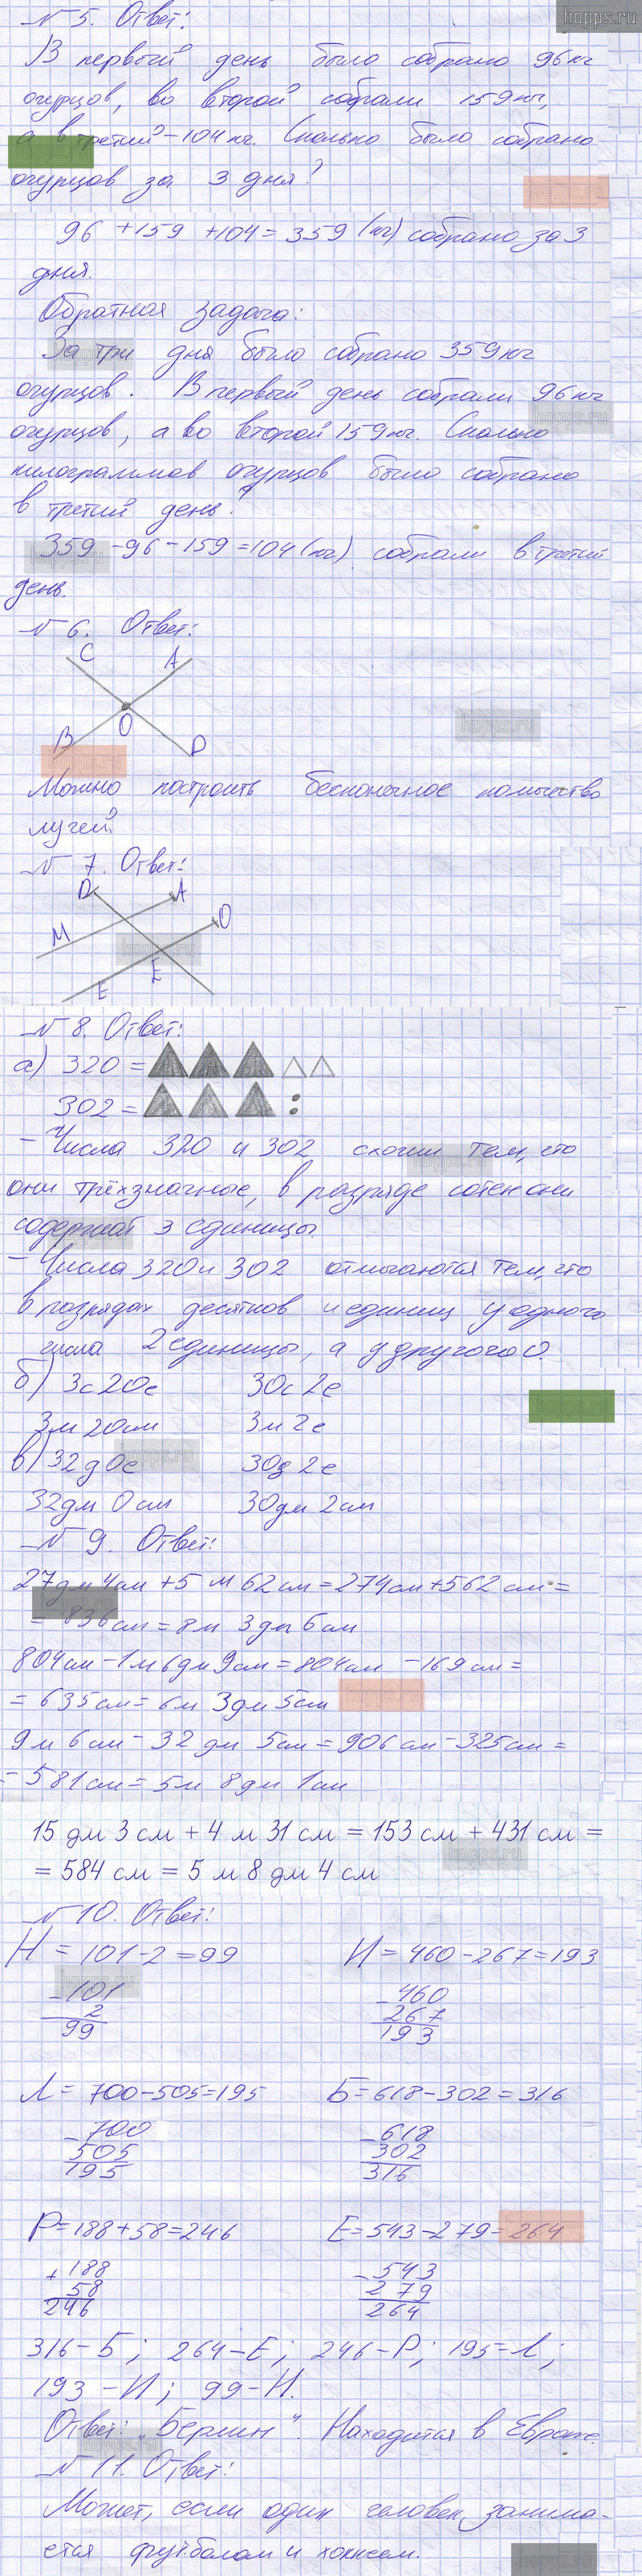 hopps.ru
№ 5. Ответ:
В первый день было собрано 96 кг
огурцов, во второй собрали 159 кг,
а в третий - 104 кг. Сколько было собрано
огурцов за 3 дня?
96 + 159 + 104 = 359 (кг) собрано за 3
дня.
Обратная задача:
За три дня было собрано 359 кг
огурцов. В первый день собрали 96 кг
огурцов, а во второй 159 кг. Сколько
килограммов огурцов было собрано
в третий день?
359 - 96 - 159 = 104 (кг) собрали в третий
день.
№ 6. Ответ:
C A
O
B D
Можно построить бесконечное количество
лучей.
№ 7. Ответ:
D A O
M
E
E
№ 8. Ответ:
а) 320 =
302 =
- Числа 320 и 302 схожи тем, что
они трёхзначные, в разряде сотен они
содержат 3 единицы.
- Числа 320 и 302 отличаются тем, что
в разрядах десятков и единиц у одного
числа 2 единицы, а у другого 0.
б) 3с 20е 30с 2е
3м 20см 3м 2е
в) 32д 0е 30д 2е
32дм 0см 30дм 2см
№ 9. Ответ:
27дм 4см + 5 м 62см = 274см + 562 см =
= 836см = 8м 3дм 6см
804см - 1м 6дм 9см = 804см - 169см =
= 635см = 6м 3дм 5см
9м 6см - 32 дм 5см = 906см - 325см =
= 581см = 5м 8дм 1см
15 дм 3 см + 4 м 31 см = 153 см + 431 см =
= 584 см = 5 м 8 дм 4 см
№ 10. Ответ:
Н = 101 - 2 = 99 И = 460 - 267 = 193
- 101 - 460
2 267
99 193
Л = 700 - 505 = 195 Б = 618 - 302 = 316
- 700 - 618
505 302
195 316
Р = 188 + 58 = 246 Е = 543 - 279 = 264
+ 188 - 543
58 279
246 264
316 - Б; 264 - Е; 246 - Р; 195 = Л;
193 - И; 99 - Н.
Ответ: "Берлин". Находится в Европе.
№ 11. Ответ:
Может, если один человек занима-
ется футболом и хоккеем.